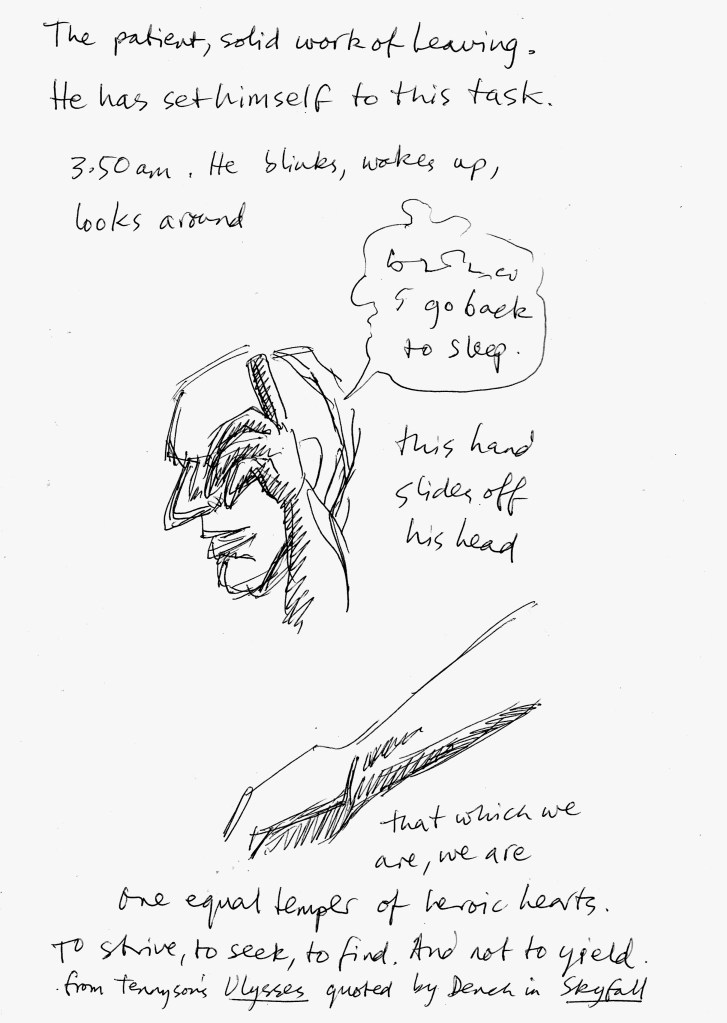 The patient, solid work of leaving.
He has set himself to this task.
3.50 am. He blinks, wakes up,
looks around
go back
to sleep.
this hand
slides off
his head
that which we
are, we are
One equal temper of heroic hearts.
To strive, to seek, to find. And not to yield.
from Tennyson's Ulysses quoted by Dench in Skyfall